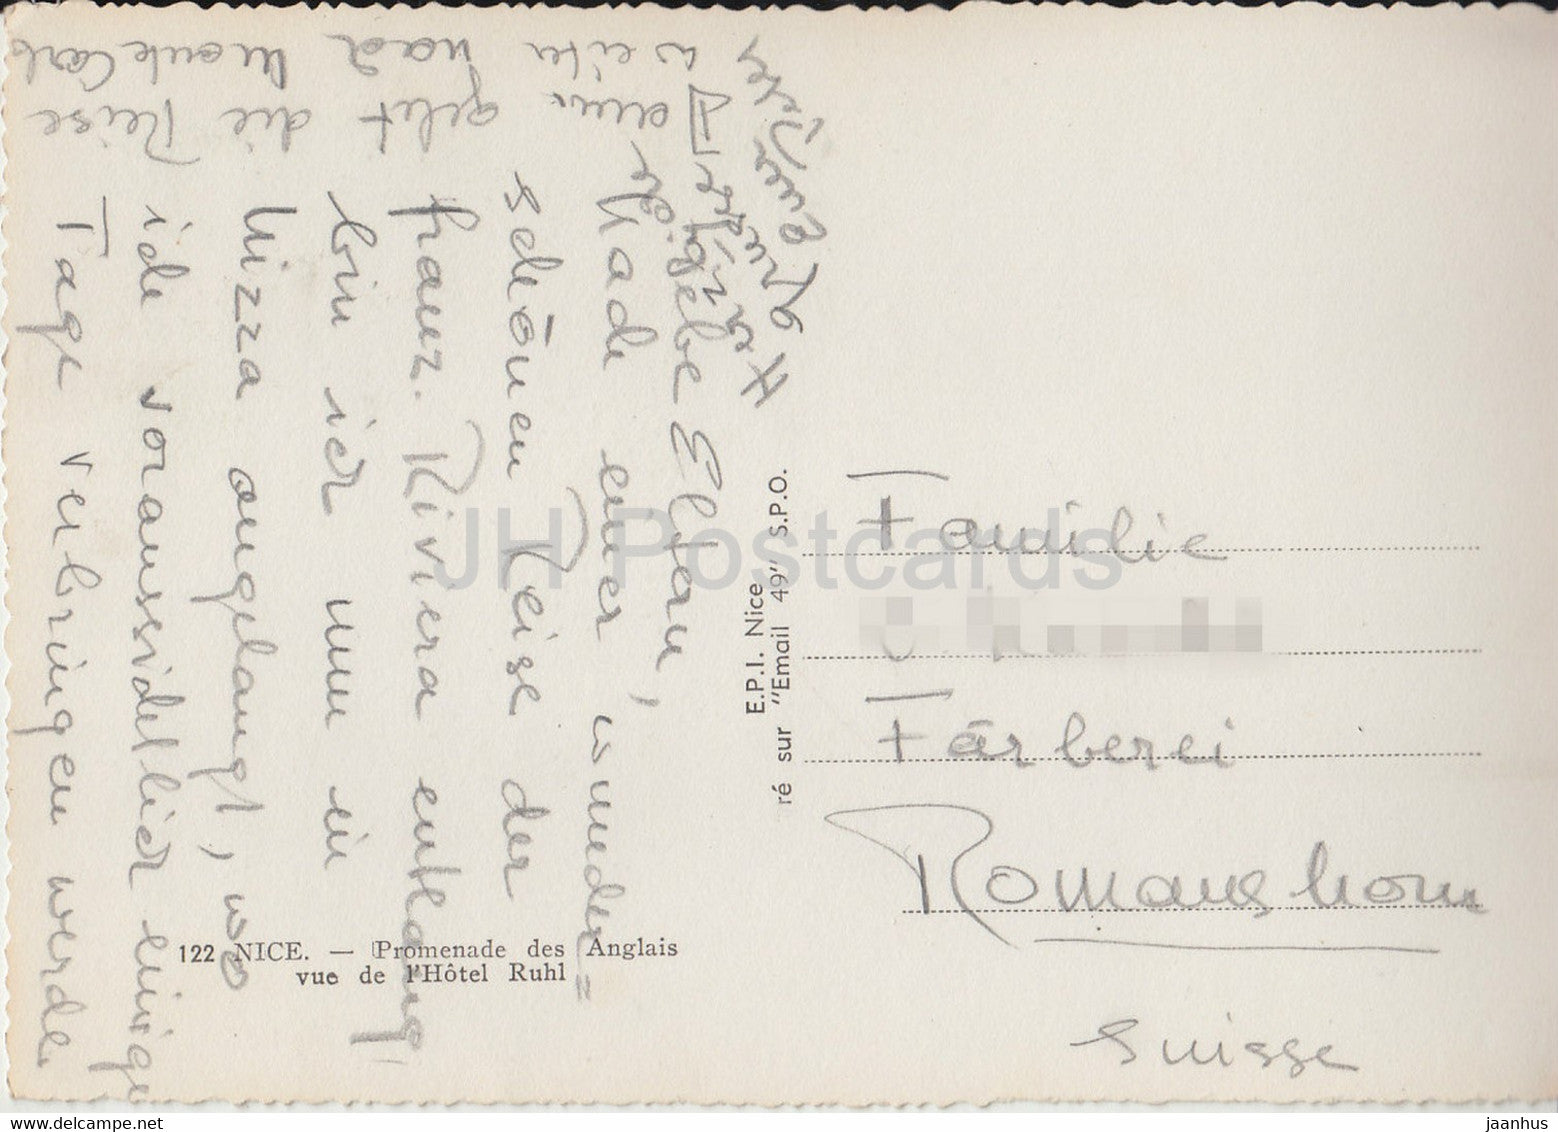 Liebe Eltern,
Nach einer wunder=
schönen Reise der
franz. Riviera entlang
bin ich nun in
Nizza angelangt, wo
ich voraussichtlich einige
Tage verbringen werde
dann geht die Reise
weiter nach Monte Carlo
Herzliche Grüsse
Euer
E.P.I. Nice
ré sur "Email 49" S.P.O.
Familie
Färberei
Romanshorn
Suisse
122 NICE. — Promenade des Anglais
vue de l'Hôtel Ruhl
JH Postcards
www.delcampe.net
jaanhus